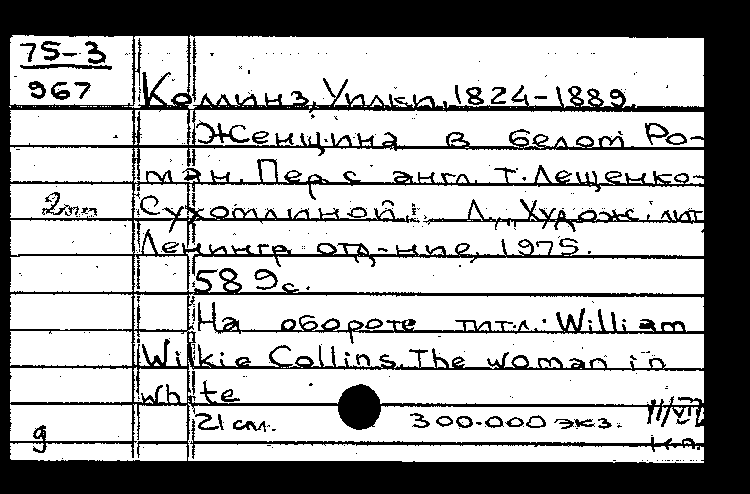 75-3
967
Коллинз, Уилки, 1824-1889.
Женщина в белом. Ро-
ман. Пер. с англ. Т. Лещенко-
Сухомлиной. Л., „Худож. лит.
Ленингр. отд-ние, 1975.
589 с.
На обороте титл.: William
Wilkie Collins. The woman in
white
21 см. 300.000 экз.
9